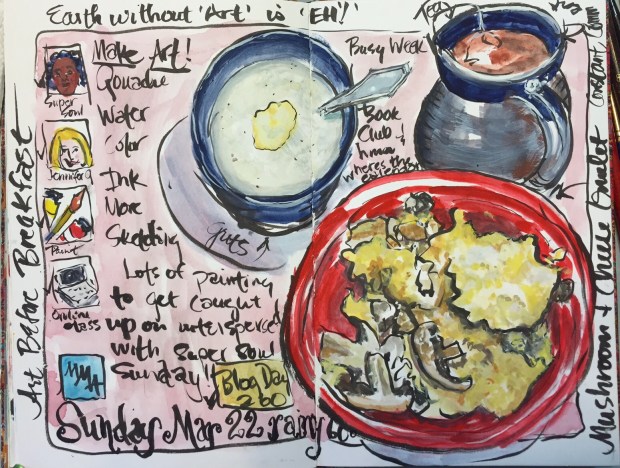 Earth without 'Art' is 'EH'!
Make Art!
Gouache
Water
Color
Ink
More
Sketching
Lots of painting
to get caught
up on interspersed
with Super Soul
Sunday!!
Super
Soul
Jennifer
Paint
Online
class
Blog Day
260
Sunday Mar 22 rainy 60°
Busy Week
Book
Club
hmmm
where's the
Grits
Tea
Constant Comm
Art Before Breakfast
Mushroom + Cheese Omelet